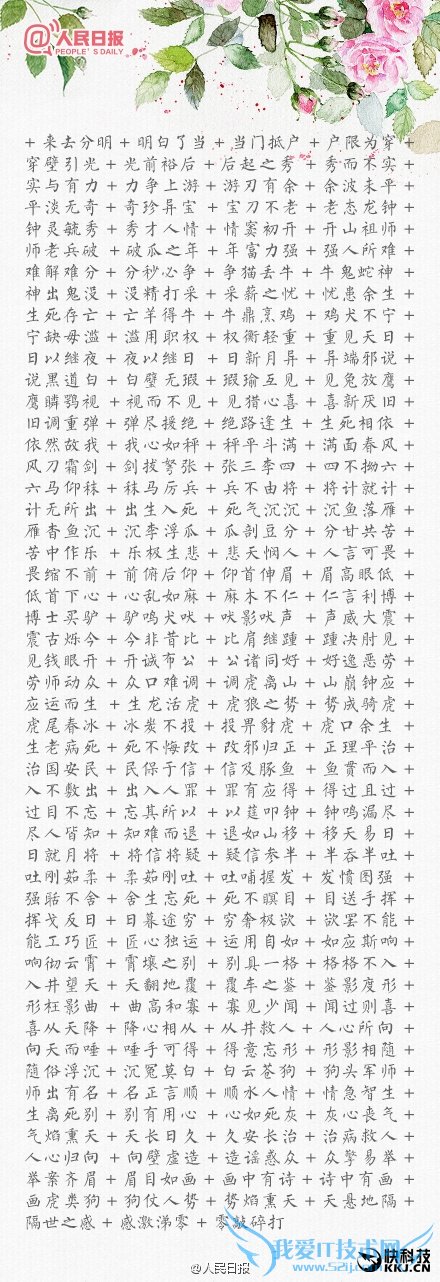 人民日报
PEOPLE'S DAILY
+ 来去分明 + 明白了当 + 当门抵户 + 户限为穿 +
穿壁引光 + 光前裕后 + 后起之秀 + 秀而不实 +
实与有力 + 力争上游 + 游刃有余 + 余波未平 +
平淡无奇 + 奇珍异宝 + 宝刀不老 + 老态龙钟 +
钟灵毓秀 + 秀才人情 + 情窦初开 + 开山祖师 +
师老兵破 + 破瓜之年 + 年富力强 + 强人所难 +
难解难分 + 分秒必争 + 争猫丢牛 + 牛鬼蛇神 +
神出鬼没 + 没精打采 + 采薪之忧 + 忧患余生 +
生死存亡 + 亡羊得牛 + 牛鼎烹鸡 + 鸡犬不宁 +
宁缺毋滥 + 滥用职权 + 权衡轻重 + 重见天日 +
日以继夜 + 夜以继日 + 日新月异 + 异端邪说 +
说黑道白 + 白璧无瑕 + 瑕瑜互见 + 见兔放鹰 +
鹰瞵鹗视 + 视而不见 + 见猎心喜 + 喜新厌旧 +
旧调重弹 + 弹尽援绝 + 绝路逢生 + 生死相依 +
依然故我 + 我心如秤 + 秤平斗满 + 满面春风 +
风刀霜剑 + 剑拔弩张 + 张三李四 + 四不拗六 +
六马仰秣 + 秣马厉兵 + 兵不由将 + 将计就计 +
计无所出 + 出生入死 + 死气沉沉 + 沉鱼落雁 +
雁杳鱼沉 + 沉李浮瓜 + 瓜剖豆分 + 分甘共苦 +
苦中作乐 + 乐极生悲 + 悲天悯人 + 人言可畏 +
畏缩不前 + 前俯后仰 + 仰首伸眉 + 眉高眼低 +
低首下心 + 心乱如麻 + 麻木不仁 + 仁言利博 +
博士买驴 + 驴鸣犬吠 + 吠影吠声 + 声威大震 +
震古烁今 + 今非昔比 + 比肩继踵 + 踵决肘见 +
见钱眼开 + 开诚布公 + 公诸同好 + 好逸恶劳 +
劳师动众 + 众口难调 + 调虎离山 + 山崩钟应 +
应运而生 + 生龙活虎 + 虎狼之势 + 势成骑虎 +
虎尾春冰 + 冰炭不投 + 投畀豺虎 + 虎口余生 +
生老病死 + 死不悔改 + 改邪归正 + 正理平治 +
治国安民 + 民保于信 + 信及豚鱼 + 鱼贯而入 +
入不敷出 + 出出入人罪 + 罪有应得 + 得过且过 +
过目不忘 + 忘其所以 + 以莛叩钟 + 钟鸣漏尽 +
尽人皆知 + 知难而退 + 退如山移 + 移天易日 +
日就月将 + 将信将疑 + 疑信参半 + 半吞半吐 +
吐刚茹柔 + 柔茹刚吐 + 吐哺握发 + 发愤图强 +
强聒不舍 + 舍生忘死 + 死不瞑目 + 目送手挥 +
挥戈反日 + 日暮途穷 + 穷奢极欲 + 欲罢不能 +
能工巧匠 + 匠心独运 + 运用自如 + 如应斯响 +
响彻云霄 + 霄壤之别 + 别具一格 + 格格不入 +
入井望天 + 天翻地覆 + 覆车之鉴 + 鉴影度形 +
形枉影曲 + 曲高和寡 + 寡见少闻 + 闻过则喜 +
喜从天降 + 降心相从 + 从井救人 + 人心所向 +
向天而唾 + 唾手可得 + 得意忘形 + 形影相随 +
随俗浮沉 + 沉冤莫白 + 白云苍狗 + 狗头军师 +
师出有名 + 名正言顺 + 顺水人情 + 情急智生 +
生离死别 + 别有用心 + 心如死灰 + 灰心丧气 +
气焰熏天 + 天长日久 + 久安长治 + 治病救人 +
人心归向 + 向壁虚造 + 造谣惑众 + 众擎易举 +
举案齐眉 + 眉目如画 + 画中有诗 + 诗中有画 +
画虎类狗 + 狗仗人势 + 势焰熏天 + 天悬地隔 +
隔世之感 + 感激涕零 + 零敲碎打
@人民日报
我爱IT技术网
www.52ij.com
快科技
KKJ.CN